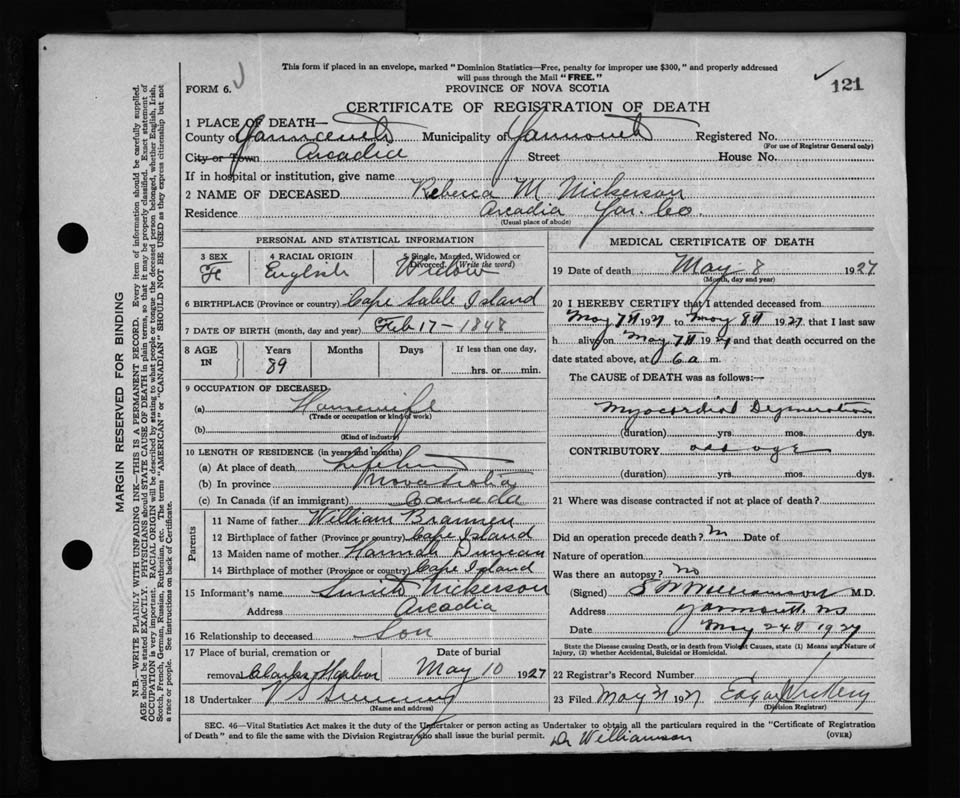 This form if placed in an envelope, marked "Dominion Statistics—Free, penalty for improper use $300," and properly addressed
will pass through the Mail "FREE."
FORM 6.
PROVINCE OF NOVA SCOTIA
121
CERTIFICATE OF REGISTRATION OF DEATH
1 PLACE OF DEATH—
County of Yarmouth Municipality of Yarmouth Registered No.
(For use of Registrar General only)
City or Town Arcadia Street House No.
If in hospital or institution, give name
2 NAME OF DECEASED Rebecca M Nickerson
Residence Arcadia Yar. Co.
(Usual place of abode)
PERSONAL AND STATISTICAL INFORMATION
3 SEX F 4 RACIAL ORIGIN English 5 Single, Married, Widowed or Divorced. (Write the word) Widow
6 BIRTHPLACE (Province or country) Cape Sable Island
7 DATE OF BIRTH (month, day and year) Feb 17 - 1848
8 AGE IN Years Months Days If less than one day,
89 hrs. or min.
9 OCCUPATION OF DECEASED
(a) Housewife
(Trade or occupation or kind of work)
(b)
(Kind of industry)
10 LENGTH OF RESIDENCE (in years and months)
(a) At place of death
(b) In province Nova Scotia
(c) In Canada (if an immigrant) Canada
Parents
11 Name of father William Brannen
12 Birthplace of father (Province or country) Cape Island
13 Maiden name of mother Hannah Duncan
14 Birthplace of mother (Province or country) Cape Island
15 Informant's name Smith Nickerson
Address Arcadia
16 Relationship to deceased Son
17 Place of burial, cremation or Date of burial
removal Clarks Harbor May 10 1927
18 Undertaker V S Sweeny
(Name and address)
MEDICAL CERTIFICATE OF DEATH
19 Date of death May 8 1927
(Month, day and year)
20 I HEREBY CERTIFY that I attended deceased from
May 7th 1927 to May 8th 1927 that I last saw
h alive on May 7th 1927 and that death occurred on the
date stated above, at 6 a m.
The CAUSE of DEATH was as follows:—
Myocardial Degeneration
(duration) yrs. mos. dys.
CONTRIBUTORY old age
(duration) yrs. mos. dys.
21 Where was disease contracted if not at place of death?
Did an operation precede death? Date of
Nature of operation
Was there an autopsy? No
(Signed) Williamson M.D.
Address Yarmouth NS
Date May 24th 1927
State the Disease causing Death, or in death from Violent Causes, state (1) Means and Nature of
Injury, (2) whether Accidental, Suicidal or Homicidal.
22 Registrar's Record Number
23 Filed May 31 1927 Edgar
(Division Registrar)
SEC. 46—Vital Statistics Act makes it the duty of the Undertaker or person acting as Undertaker to obtain all the particulars required in the "Certificate of Registration
of Death" and to file the same with the Division Registrar who shall issue the burial permit.
(OVER)
Dr Williamson
MARGIN RESERVED FOR BINDING
N.B.—WRITE PLAINLY WITH UNFADING INK—THIS IS A PERMANENT RECORD. Every item of information should be carefully supplied.
AGE should be stated EXACTLY. PHYSICIANS should STATE CAUSE OF DEATH in plain terms, so that it may be properly classified. Exact statement of
OCCUPATION is very important. RACIAL ORIGIN will be described by stating to what people or tongue the deceased person belonged, whether English, Irish,
Scotch, French, German, Russian, Ruthenian, etc. The terms "AMERICAN" or "CANADIAN" SHOULD NOT BE USED as they express citizenship but not
a race or people. See instructions on back of Certificate.